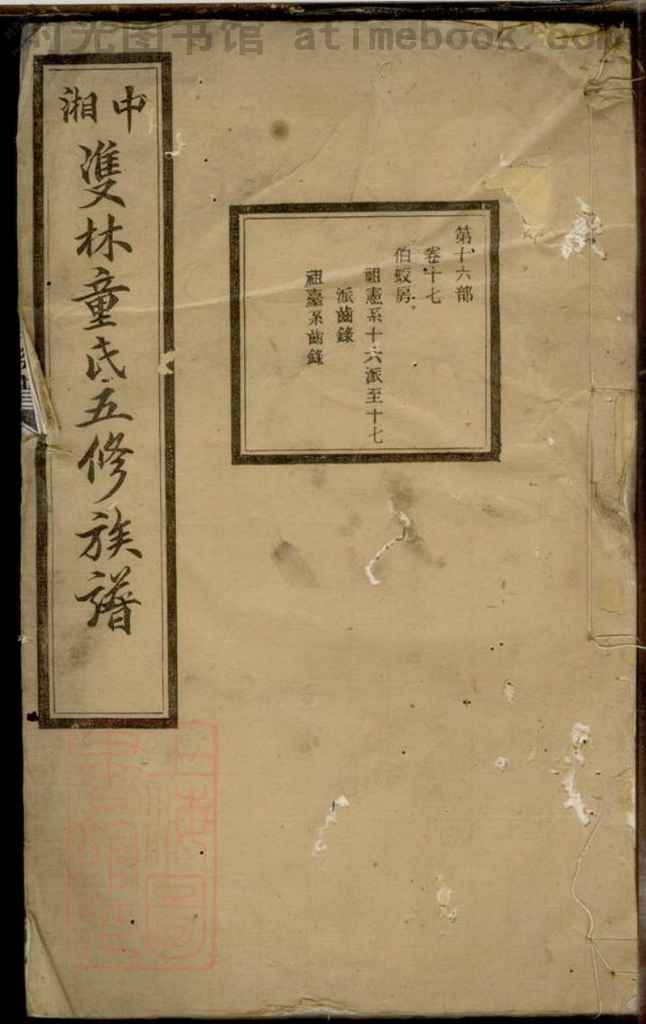 时光图书馆 atimebook.com
中湘
雙林童氏五修族譜
第十六部
卷十七
伯蛟房
祖憲系十六派至十七
派齒錄
祖臺系齒錄